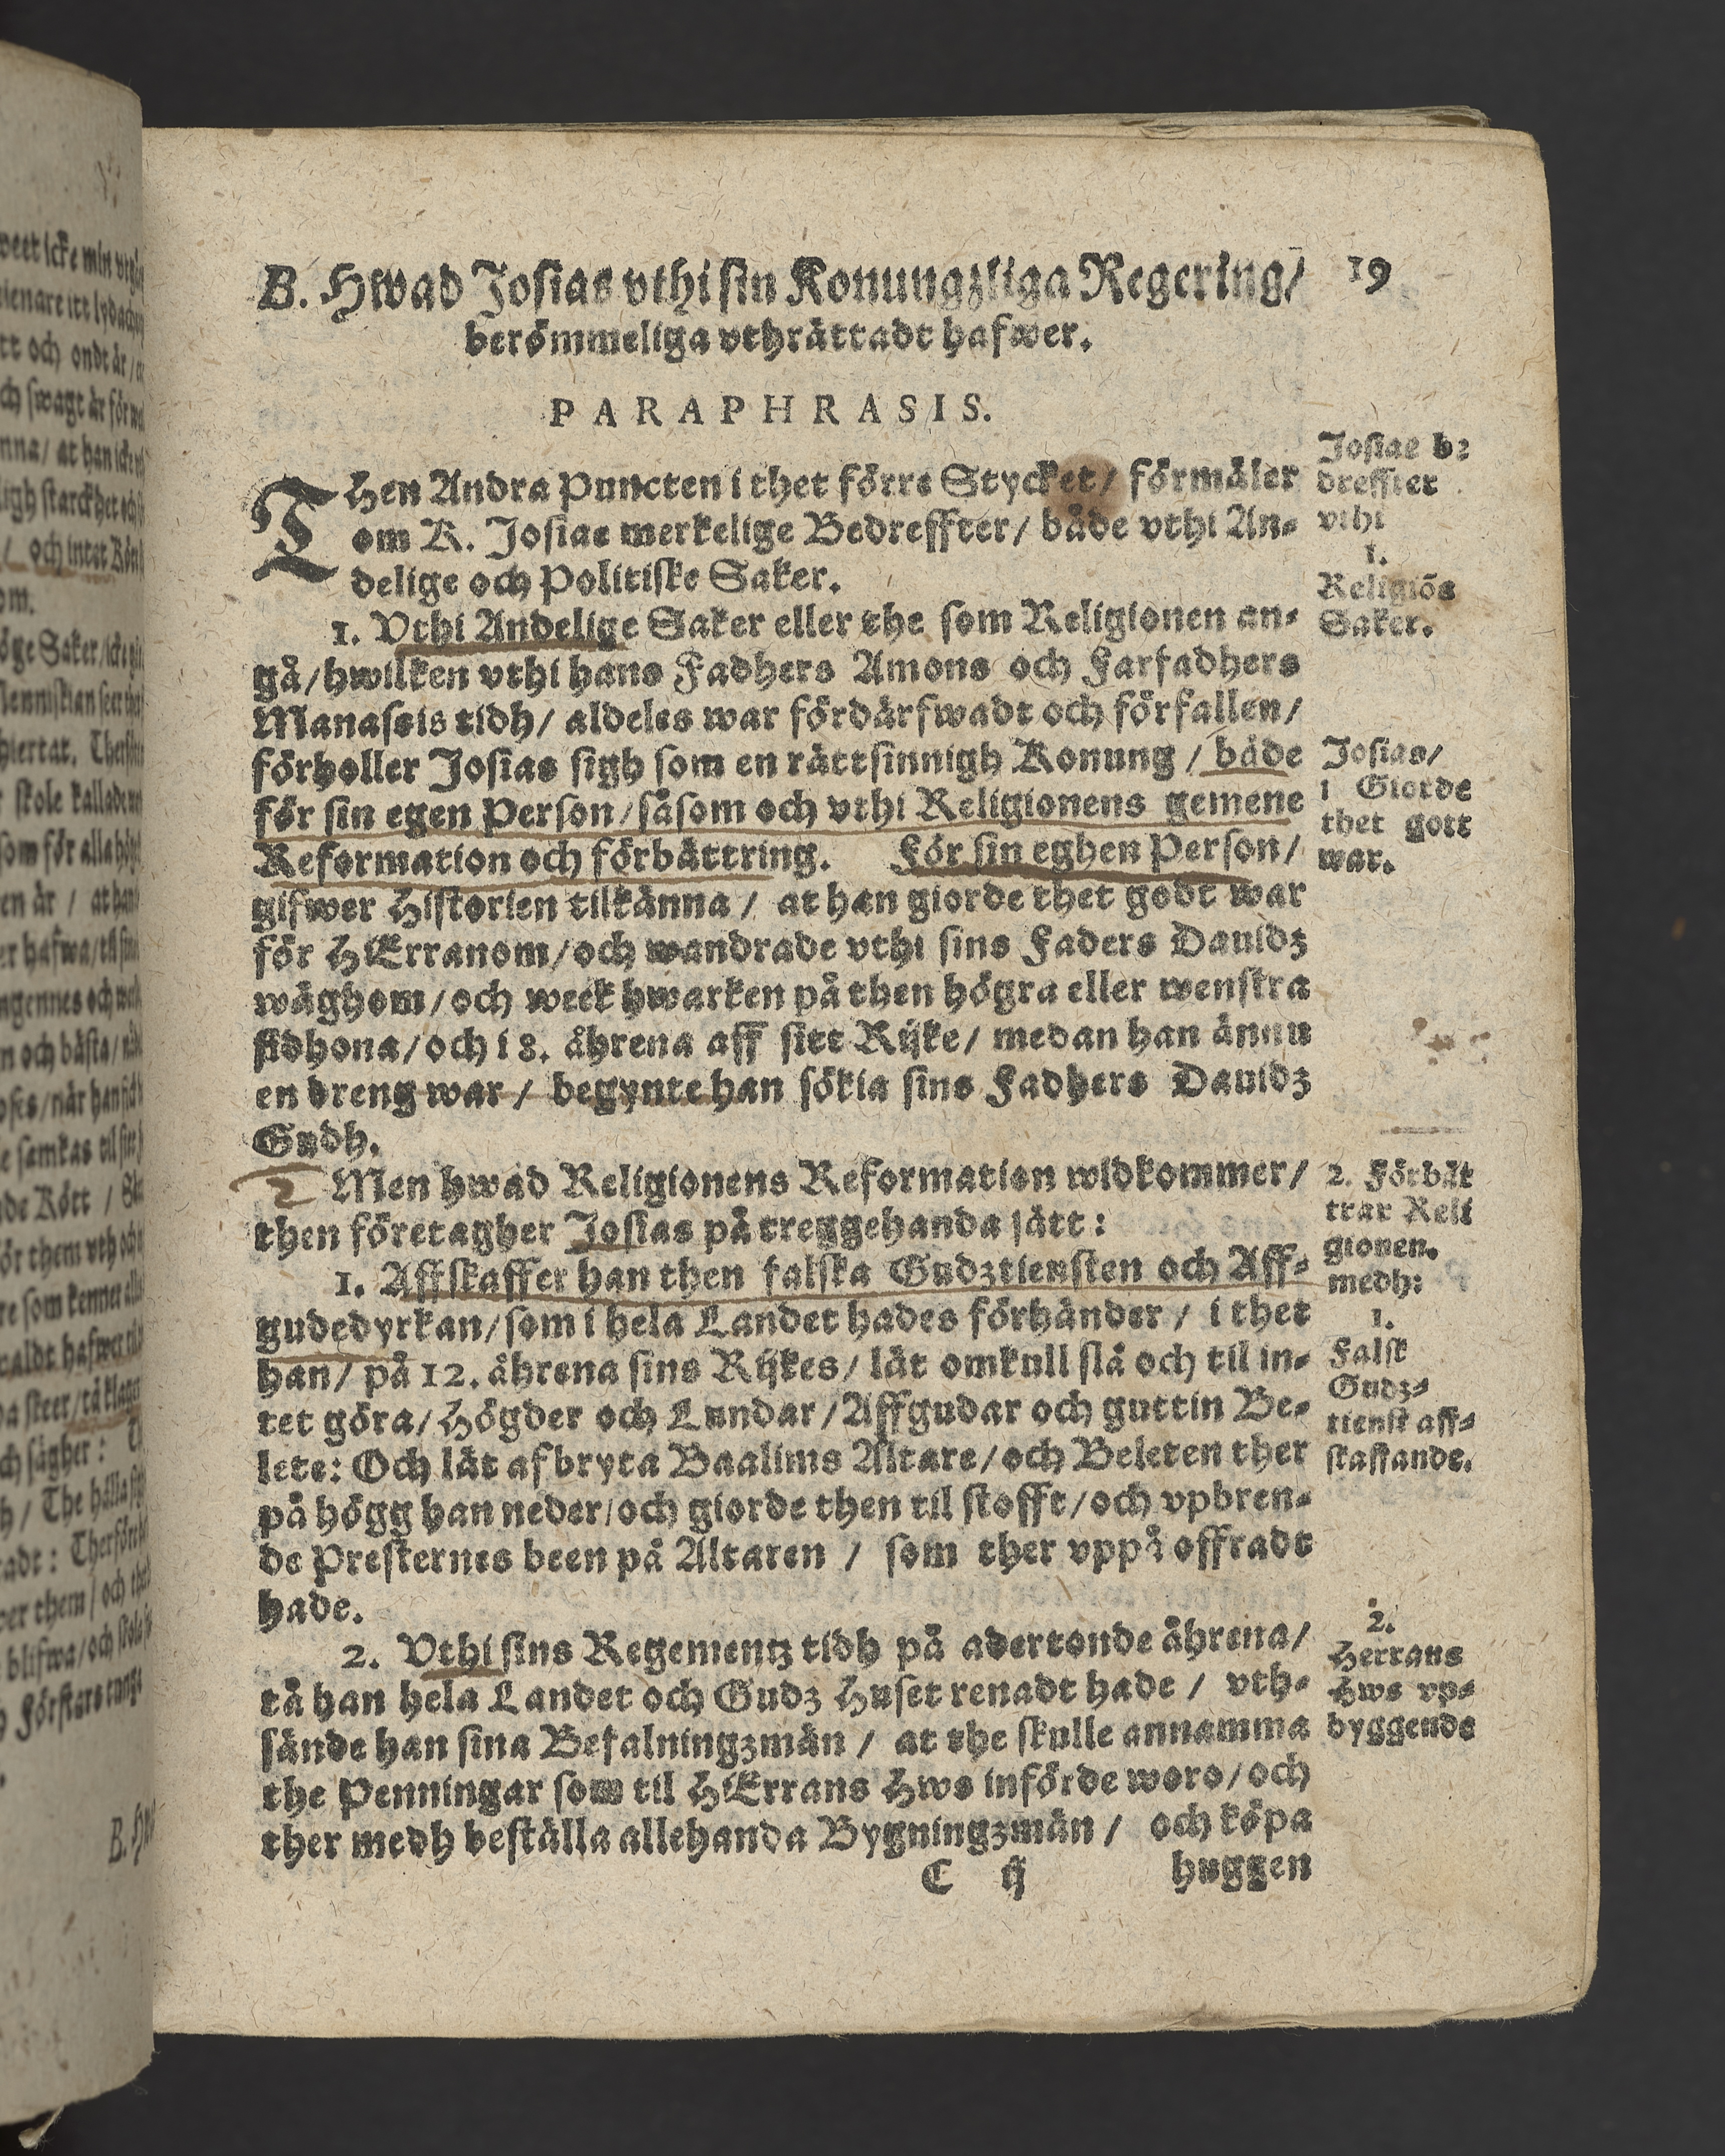 B. Hwad Josias vthi sin Konungzliga Regering/
19
berömmeliga vthrättadt hafwer.
PARAPHRASIS.
THen Andra Puncten i thet förre Stycket/ förmäler
om K. Josiae merkelige Bedreffter/ både vthi An-
delige och Politiske Saker.
1. Vthi Andelige Saker eller the som Religionen an-
gå/hwilken vthi hans Fadhers Amons och Farfadhers
Manassis tidh/ aldeles war fördärfwadt och förfallen/
förholler Josias sigh som en rättsinnigh Konung / både
för sin egen Person/såsom och vthi Religionens gemene
Reformation och förbättring. För sin eghen Person/
gifwer Historien tilkänna / at han giorde thet godt war
för HErranom/och wandrade vthi sins Faders Dauidz
wäghom/och week hwarken på then högra eller wenstra
sidhona/och i 8. åhrena aff sitt Rijke/ medan han ännu
en dreng war / begynte han sökia sins Fadhers Dauidz
Gudh.
Men hwad Religionens Reformation widkommer/
then företagher Josias på treggehanda sätt:
1. Affskaffer han then falska Gudztiensten och Aff-
gudedyrkan/som i hela Landet hades förhänder / i thet
han/ på 12. åhrena sins Rijkes/ lät omkull slå och til in-
tet göra/Högder och Lundar/Affgudar och guttin Be-
lete: Och lät afbryta Baalims Altare/och Beleten ther
på högg han neder/och giorde then til stofft/och vpbren-
de Presternes been på Altaren / som ther vppå offradt
hade.
2. Vthi sins Regementz tidh på adertonde åhrena/
tå han hela Landet och Gudz Huset renadt hade / vth-
sände han sina Befalningzmän / at the skulle annamma
the Penningar som til HErrans Hws införde woro/och
ther medh beställa allehanda Bygningzmän / och köpa
C ij huggen
Josiae be
dreffter
vthi
1.
Religiõs
Saker.
Josias/
1 Giorde
thet gott
war.
2. Förbät
trar Reli
gionen.
medh:
1.
Falsk
Gudz-
tienst aff-
skaffande.
2.
Herrans
Hws vp-
byggende